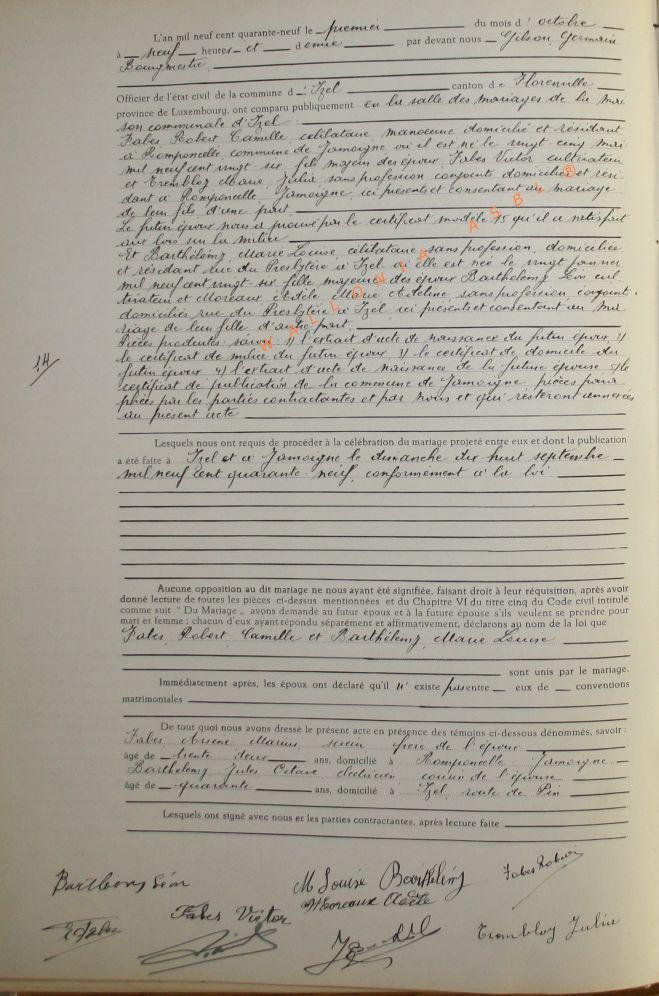 L'an mil neuf cent quarante-neuf le premier du mois d'octobre
à neuf heures et demie par devant nous Gilson, Germain
Bourgmestre
Officier de l'état civil de la commune d'Izel canton de Florenville
province de Luxembourg, ont comparu publiquement en la salle des mariages de la mai
son communale d'Izel :
Fabes, Robert Camille célibataire manoeuvre domicilié et résidant
à Romponcelle commune de Jamoigne où il est né le vingt cinq mai
mil neuf cent vingt six fils majeur des époux Fabes Victor cultivateur
et Trembloy Marie Julia sans profession conjoints domiciliés et rési
dant à Romponcelle Jamoigne, ici présents et consentant au mariage
de leur fils, d'une part
Le futur époux nous a prouvé par le certificat modèle 15 qu'il a satisfait
aux lois sur la milice
Et Barthélémy, Marie Louise, célibataire sans profession, domiciliée
et résidant rue du Presbytère à Izel où elle est née le vingt janvier
mil neuf cent vingt six fille majeure des époux Barthélémy Léon cul
tivateur et Moreaux, Adèle Marie Adeline, sans profession conjoints
domiciliés rue du Presbytère à Izel ici présents et consentant au ma
riage de leur fille, d'autre part
Pièces produites savoir : 1) l'extrait d'acte de naissance du futur époux, 2)
le certificat de milice du futur époux 3) le certificat de domicile du
futur époux 4) l'extrait d'acte de naissance de la future épouse 5) le
certificat de publication de la commune de Jamoigne, pièces para
phées par les parties contractantes et par nous et qui resteront annexées
au présent acte
14
WALLONIA ASBL
Lesquels nous ont requis de procéder à la célébration du mariage projeté entre eux et dont la publication
a été faite à Izel et à Jamoigne le dimanche dix huit septembre
mil neuf cent quarante neuf, conformément à la loi
Aucune opposition au dit mariage ne nous ayant été signifiée, faisant droit à leur réquisition, après avoir
donné lecture de toutes les pièces ci-dessus mentionnées et du Chapitre VI du titre cinq du Code civil intitulé
comme suit " Du Mariage „ avons demandé au futur époux et à la future épouse s'ils veulent se prendre pour
mari et femme ; chacun d'eux ayant répondu séparément et affirmativement, déclarons au nom de la loi que
Fabes, Robert Camille et Barthélémy, Marie Louise
sont unis par le mariage.
Immédiatement après, les époux ont déclaré qu'il n'existe pas entre eux de conventions
matrimoniales
De tout quoi nous avons dressé le présent acte en présence des témoins ci-dessous dénommés, savoir :
Fabes, Arsène Marius, frère de l'époux
âgé de trente deux ans, domicilié à Romponcelle Jamoigne
Barthélémy Jules Octave électricien cousin de l'épouse
âgé de quarante ans, domicilié à Izel, route de Pin
Lesquels ont signé avec nous et les parties contractantes, après lecture faite
Léon
M Louise Barthélémy
Moreaux Adèle
Fabes Robert
Fabes Victor
Trembloy Julia